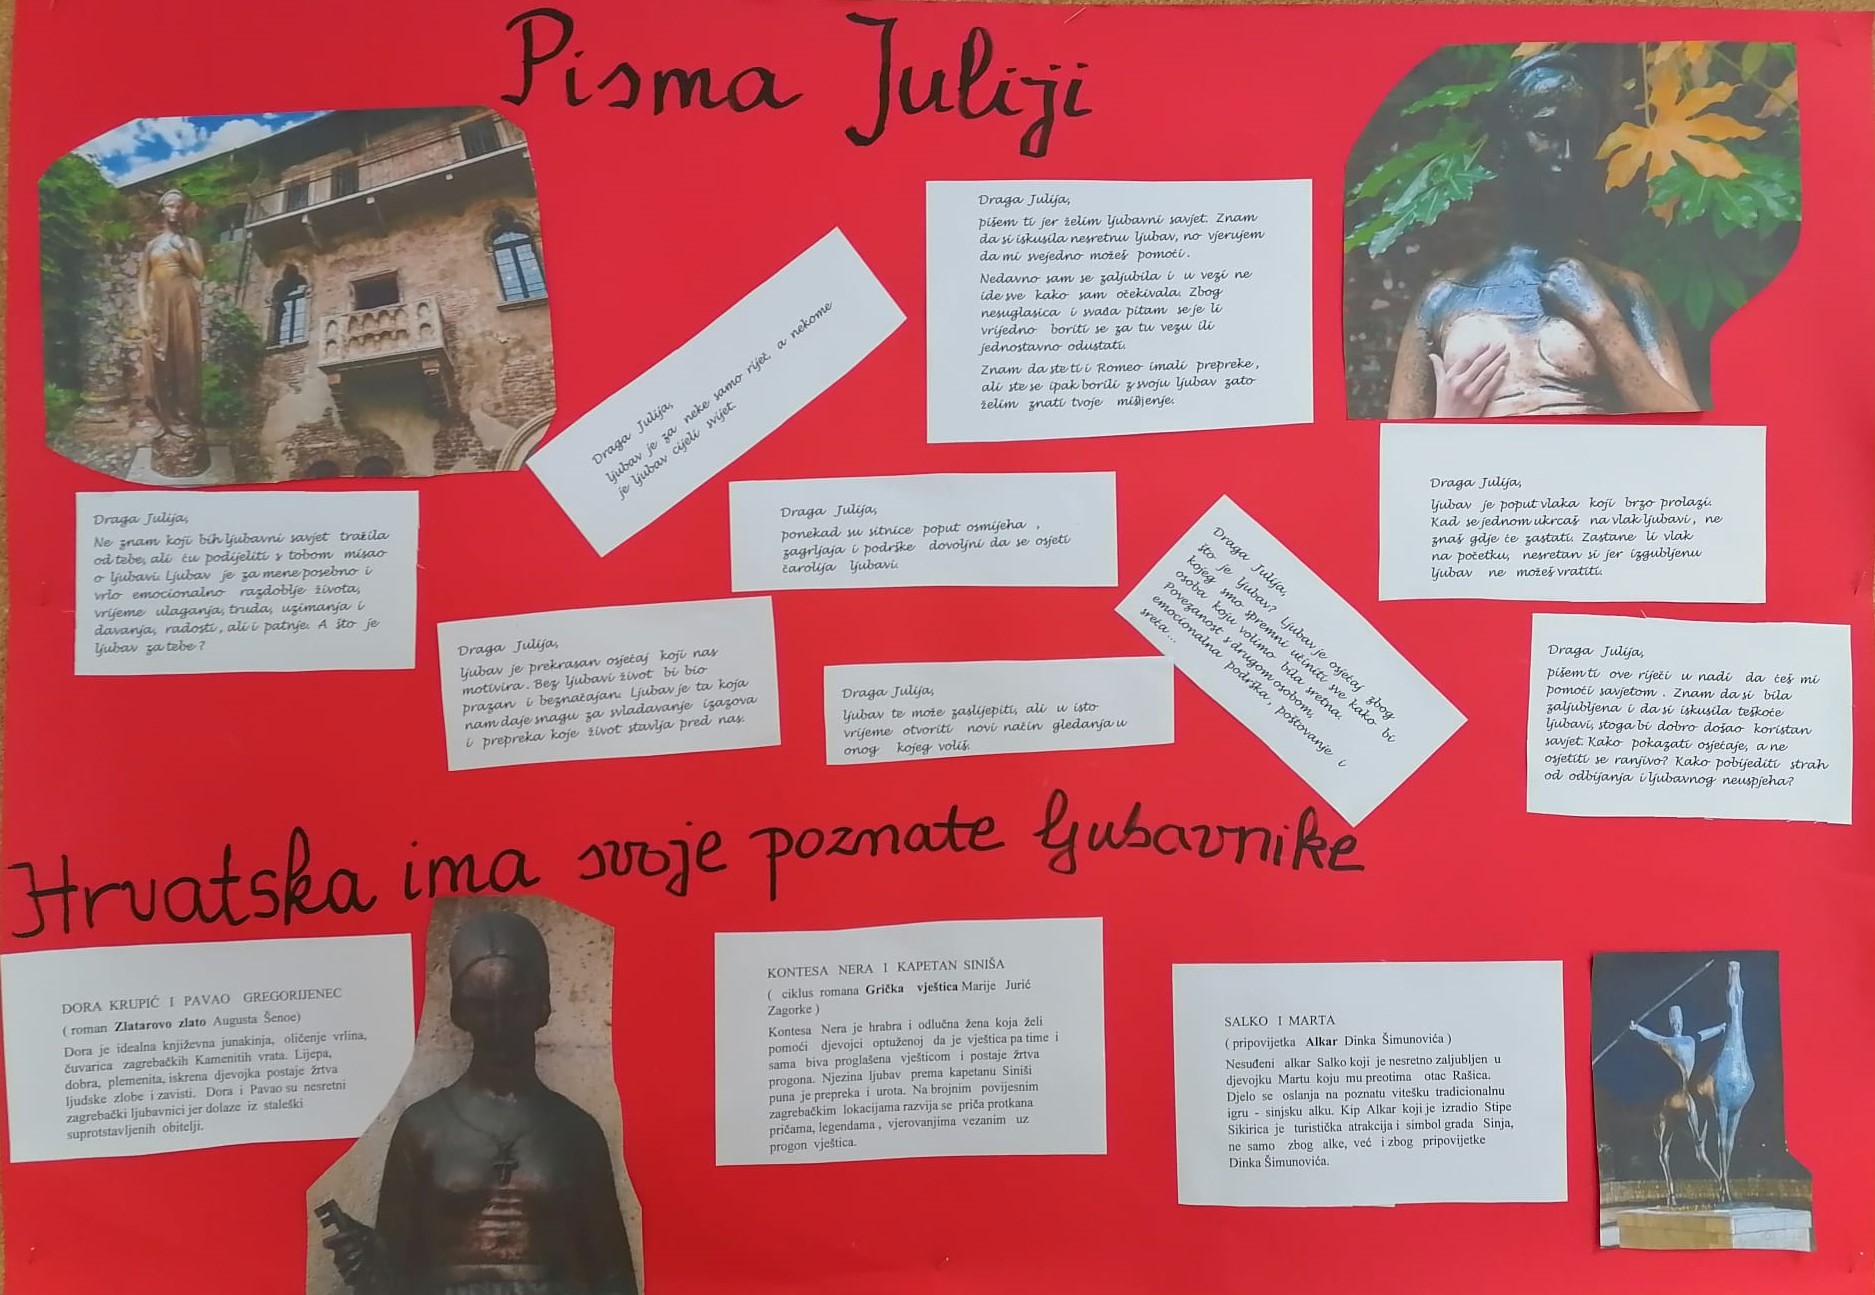 Pisma Juliji
Draga Julija,
pišem ti jer želim ljubavni savjet. Znam
da si iskusila nesretnu ljubav, no vjerujem
da mi svejedno možeš pomoći.
Nedavno sam se zaljubila i u vezi ne
ide sve kako sam očekivala. Zbog
nesuglasica i svađa pitam se je li
vrijedno boriti se za tu vezu ili
jednostavno odustati.
Znam da ste ti i Romeo imali prepreke,
ali ste se ipak borili z svoju ljubav zato
želim znati tvoje mišljenje.
Draga Julija,
ljubav je za neke samo riječ, a nekome
je ljubav cijeli svijet.
Draga Julija,
ljubav je poput vlaka koji brzo prolazi.
Kad se jednom ukrcaš na vlak ljubavi, ne
znaš gdje će zastati. Zastane li vlak
na početku, nesretan si jer izgubljenu
ljubav ne možeš vratiti.
Draga Julija,
Ne znam koji bih ljubavni savjet tražila
od tebe, ali ću podijeliti s tobom misao
o ljubavi. Ljubav je za mene posebno i
vrlo emocionalno razdoblje života,
vrijeme ulaganja, truda, uzimanja i
davanja, radosti, ali i patnje. A što je
ljubav za tebe?
Draga Julija,
ponekad su sitnice poput osmijeha ,
zagrljaja i podrške dovoljni da se osjeti
čarolija ljubavi.
Draga Julija,
što je ljubav? Ljubav je osjećaj zbog
kojeg smo spremni učiniti sve kako bi
osoba koju volimo bila sretna.
Povezanost s drugom osobom,
emocionalna podrška , poštovanje i
sreća...
Draga Julija,
ljubav je prekrasan osjećaj koji nas
motivira. Bez ljubavi život bi bio
prazan i beznačajan. Ljubav je ta koja
nam daje snagu za svladavanje izazova
i prepreka koje život stavlja pred nas.
Draga Julija,
ljubav te može zaslijepiti, ali u isto
vrijeme otvoriti novi način gledanja u
onog kojeg voliš.
Draga Julija,
pišem ti ove riječi u nadi da ćeš mi
pomoći savjetom . Znam da si bila
zaljubljena i da si iskusila teškoće
ljubavi, stoga bi dobro došao koristan
savjet. Kako pokazati osjećaje, a ne
osjetiti se ranjivo? Kako pobijediti strah
od odbijanja i ljubavnog neuspjeha?
Hrvatska ima svoje poznate ljubavnike
DORA KRUPIĆ I PAVAO GREGORIJENEC
( roman Zlatarovo zlato Augusta Šenoe)
Dora je idealna književna junakinja, oličenje vrlina,
čuvarica zagrebačkih Kamenitih vrata. Lijepa,
dobra, plemenita, iskrena djevojka postaje žrtva
ljudske zlobe i zavisti. Dora i Pavao su nesretni
zagrebački ljubavnici jer dolaze iz staleški
suprotstavljenih obitelji.
KONTESA NERA I KAPETAN SINIŠA
( ciklus romana Grička vještica Marije Jurić
Zagorke )
Kontesa Nera je hrabra i odlučna žena koja želi
pomoći djevojci optuženoj da je vještica pa time i
sama biva proglašena vješticom i postaje žrtva
progona. Njezina ljubav prema kapetanu Siniši
puna je prepreka i urota. Na brojnim povijesnim
zagrebačkim lokacijama razvija se priča protkana
pričama, legendama , vjerovanjima vezanim uz
progon vještica.
SALKO I MARTA
( pripovijetka Alkar Dinka Šimunovića )
Nesuđeni alkar Salko koji je nesretno zaljubljen u
djevojku Martu koju mu preotima otac Rašica.
Djelo se oslanja na poznatu vitešku tradicionalnu
igru - sinjsku alku. Kip Alkar koji je izradio Stipe
Sikirica je turistička atrakcija i simbol grada Sinja,
ne samo zbog alke, već i zbog pripovijetke
Dinka Šimunovića.